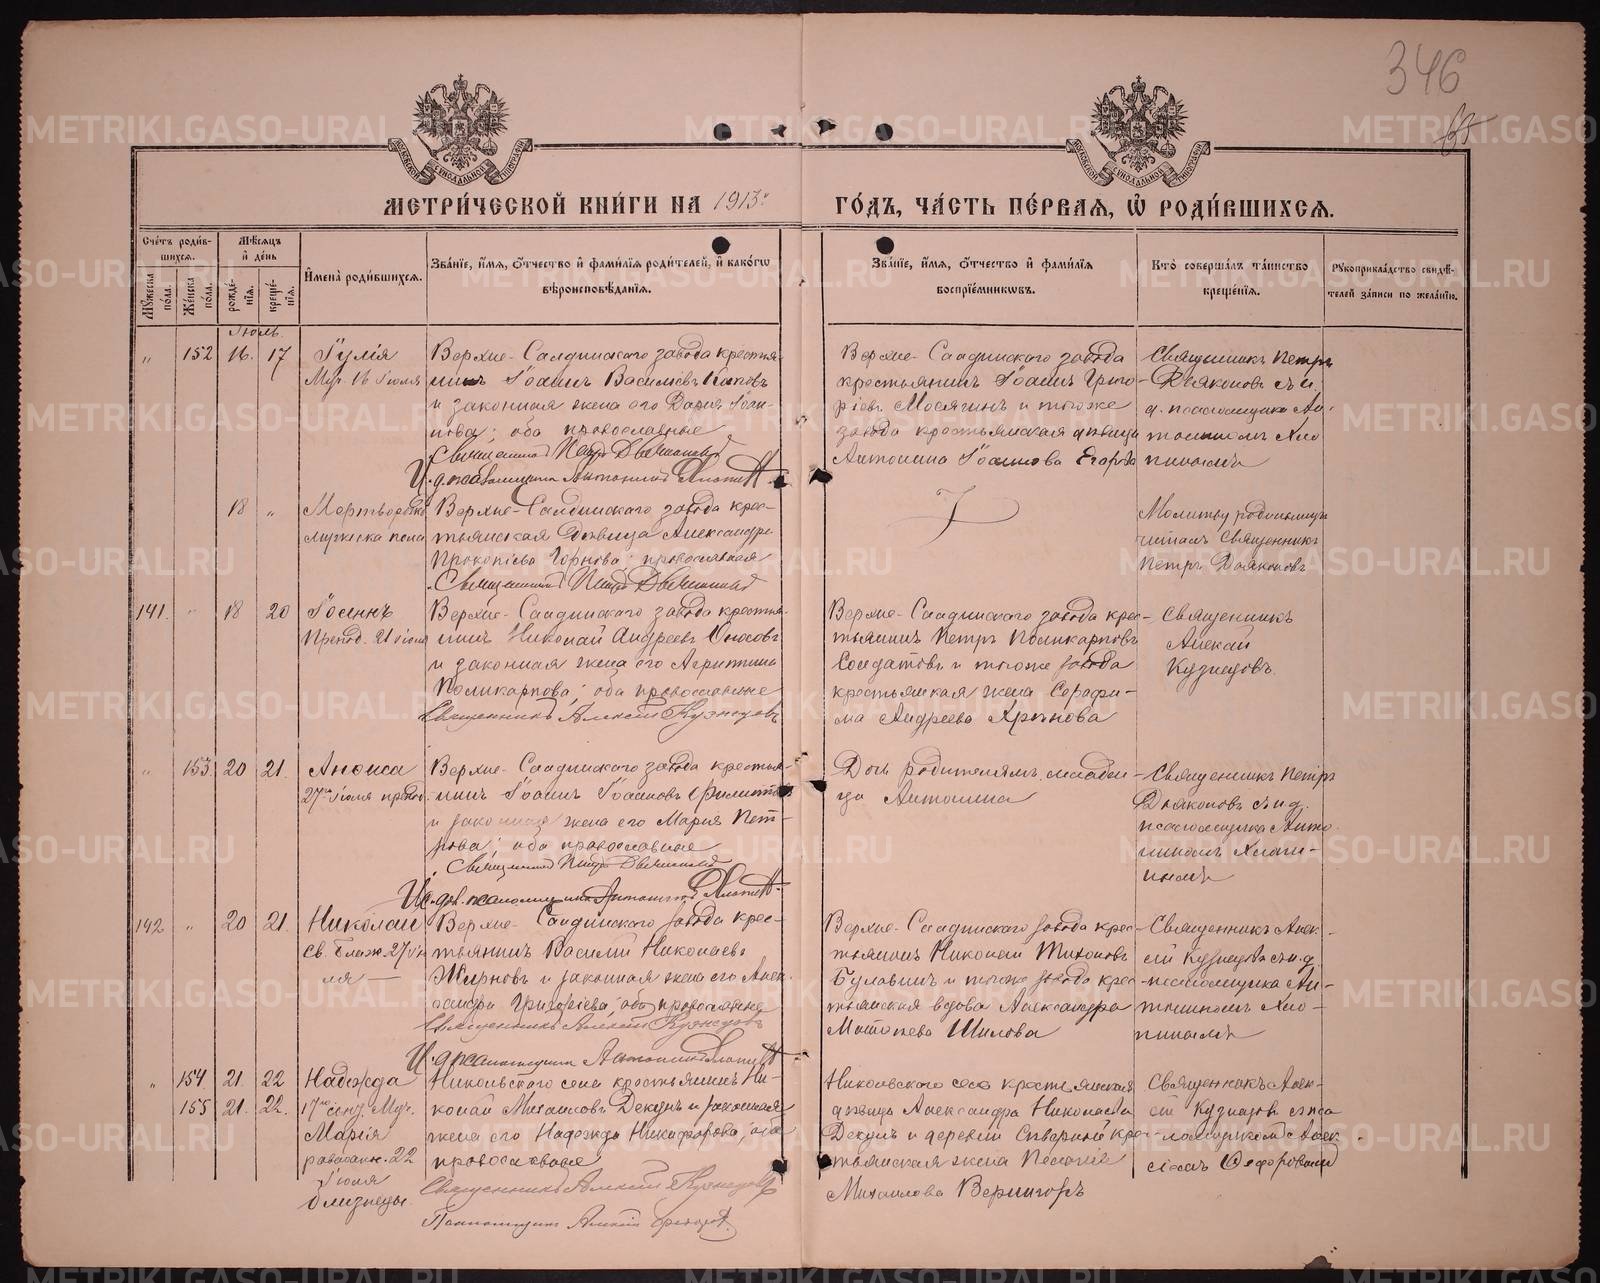 346
МЕТРИ́ЧЕСКОЙ КНИ́ГИ НА 1913й ГО́ДЪ, ЧА́СТЬ ПЕ́РВАЯ, Ѡ РОДИ́ВШИХСЯ.
Сче́тъ роди́в-
шихся.
Мꙋ́жеска по́ла.
Же́нска по́ла.
Мѣ́сяцъ и҆ де́нь
рожде́-нїя.
креще́-нїя.
И҆мена̀ роди́вшихся.
Зва́нїе, и҆́мя, ѻ҆́тчество и҆ фами́лїя роди́телей, и҆ како́гѡ
вѣроисповѣ́данїя.
Зва́нїе, и҆́мя, ѻ҆́тчество и҆ фами́лїя
воспрїе́мникѡвъ.
Кто̀ соверша́лъ та́инство
креще́нїя.
Рꙋкоприкла́дство свидѣ́-
телей за́писи по жела́нїю.
Іюль.
" 152 16. 17
Іулія
Муч. 16 Іюля
Верхне-Салдинскаго завода крестья-
нинъ Іоаннъ Василіевъ
и законная жена его Дарія Іоан-
нова; оба православные
Священникъ Петръ Дьяконовъ
И. д. псаломщика Антонинъ
Верхне-Салдинскаго завода
крестьянинъ Іоаннъ Григо-
ріевъ Мосягинъ и тогоже
завода крестьянская дѣвица
Антонина Іоаннова Егорова
Священникъ Петръ
Дьяконовъ съ и.
д. псаломщика Ан-
тониномъ Хло-
пинымъ
18 "
Мертворожд.
мужеска пола
Верхне-Салдинскаго завода крес-
тьянская дѣвица Александра
Прокопіева Горнова; православная
Священникъ Петръ Дьяконовъ
Молитву родильницѣ
читалъ Священникъ
Петръ Дьяконовъ
141. " 18 20
Іосифъ
Препод. 21 іюля
Верхне-Салдинскаго завода крестья-
нинъ Николай Андреевъ
и законная жена его Агриппина
Поликарпова; оба православные
Священникъ Алексій Кузнецовъ
Верхне-Салдинскаго завода крес-
тьянинъ Петръ Поликарповъ
Солдатовъ и тогоже завода
крестьянская жена Серафи-
ма Андреева
Священникъ
Алексій
Кузнецовъ.
" 153 20 21.
Анѳиса
27го Іюля препод.
Верхне-Салдинскаго завода крестья-
нинъ Іоаннъ Іоанновъ
и законная жена его Марія Пет-
рова; оба православные
Священникъ Петръ Дьяконовъ
И. дол. псаломщика Антонинъ
Дочь родителямъ, младен-
ца Антонина
Священникъ Петръ
Дьяконовъ съ и д.
псаломщика Анто-
ниномъ Хлопи-
нымъ
142 " 20 21.
Николай
Св. Блаж. 27 Ію-
ля —
Верхне-Салдинскаго завода крес-
тьянинъ Василій Николаевъ
Жирновъ и законная жена его Алек-
сандра Григоріева, оба православные
Священникъ Алексій Кузнецовъ
И. д. псаломщика Антонинъ
Верхне-Салдинскаго завода крес-
тьянинъ Николай Тихоновъ
Булавинъ и тогоже завода крес-
тьянская вдова Александра
Матѳеева Шилова
Священникъ Алек-
сій Кузнецовъ съ и. д.
псаломщика Ан-
тониномъ Хло-
пинымъ
" 154. 21. 22
155 21. 22.
Надежда
17го сент. Муч.
Марія
равноап. 22
Іюля
близнецы.
Никольскаго села крестьянинъ Ни-
колай Михаиловъ Декунъ и законная
жена его Надежда Никифорова, оба
православные
Священникъ Алексій Кузнецовъ
Псаломщикъ Алексій
Никольскаго села крестьянская
дѣвица Александра Николаева
Декунъ и деревни Сѣверной кре-
стьянская жена Пелагія
Михаилова Вернигоръ
Священникъ Алек-
сій Кузнецовъ съ пса-
ломщикомъ Алек-
сіемъ Ѳедоровымъ
METRIKI.GASO-URAL.RU